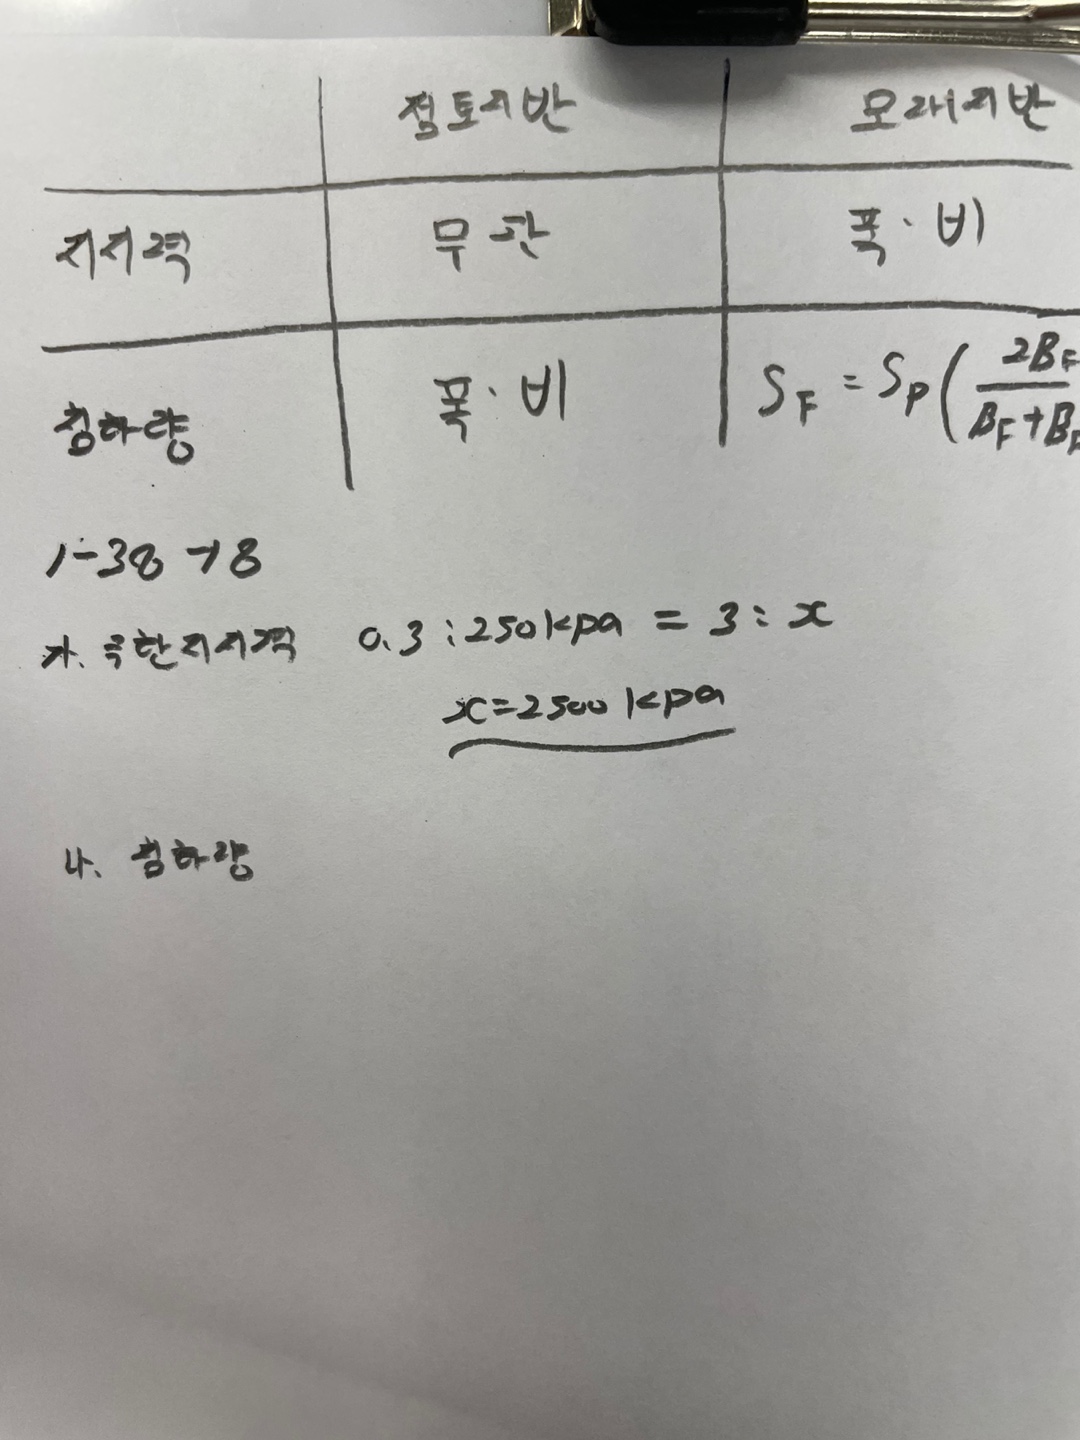 점토지반 모래지반
지지력 무관 폭·비
침하량 폭·비 S_F = S_P ( 2B_F / B_F + B_P
1-38 → 8
가. 극한지지력 0.3 : 250kpa = 3 : x
x = 2500 kpa
나. 침하량